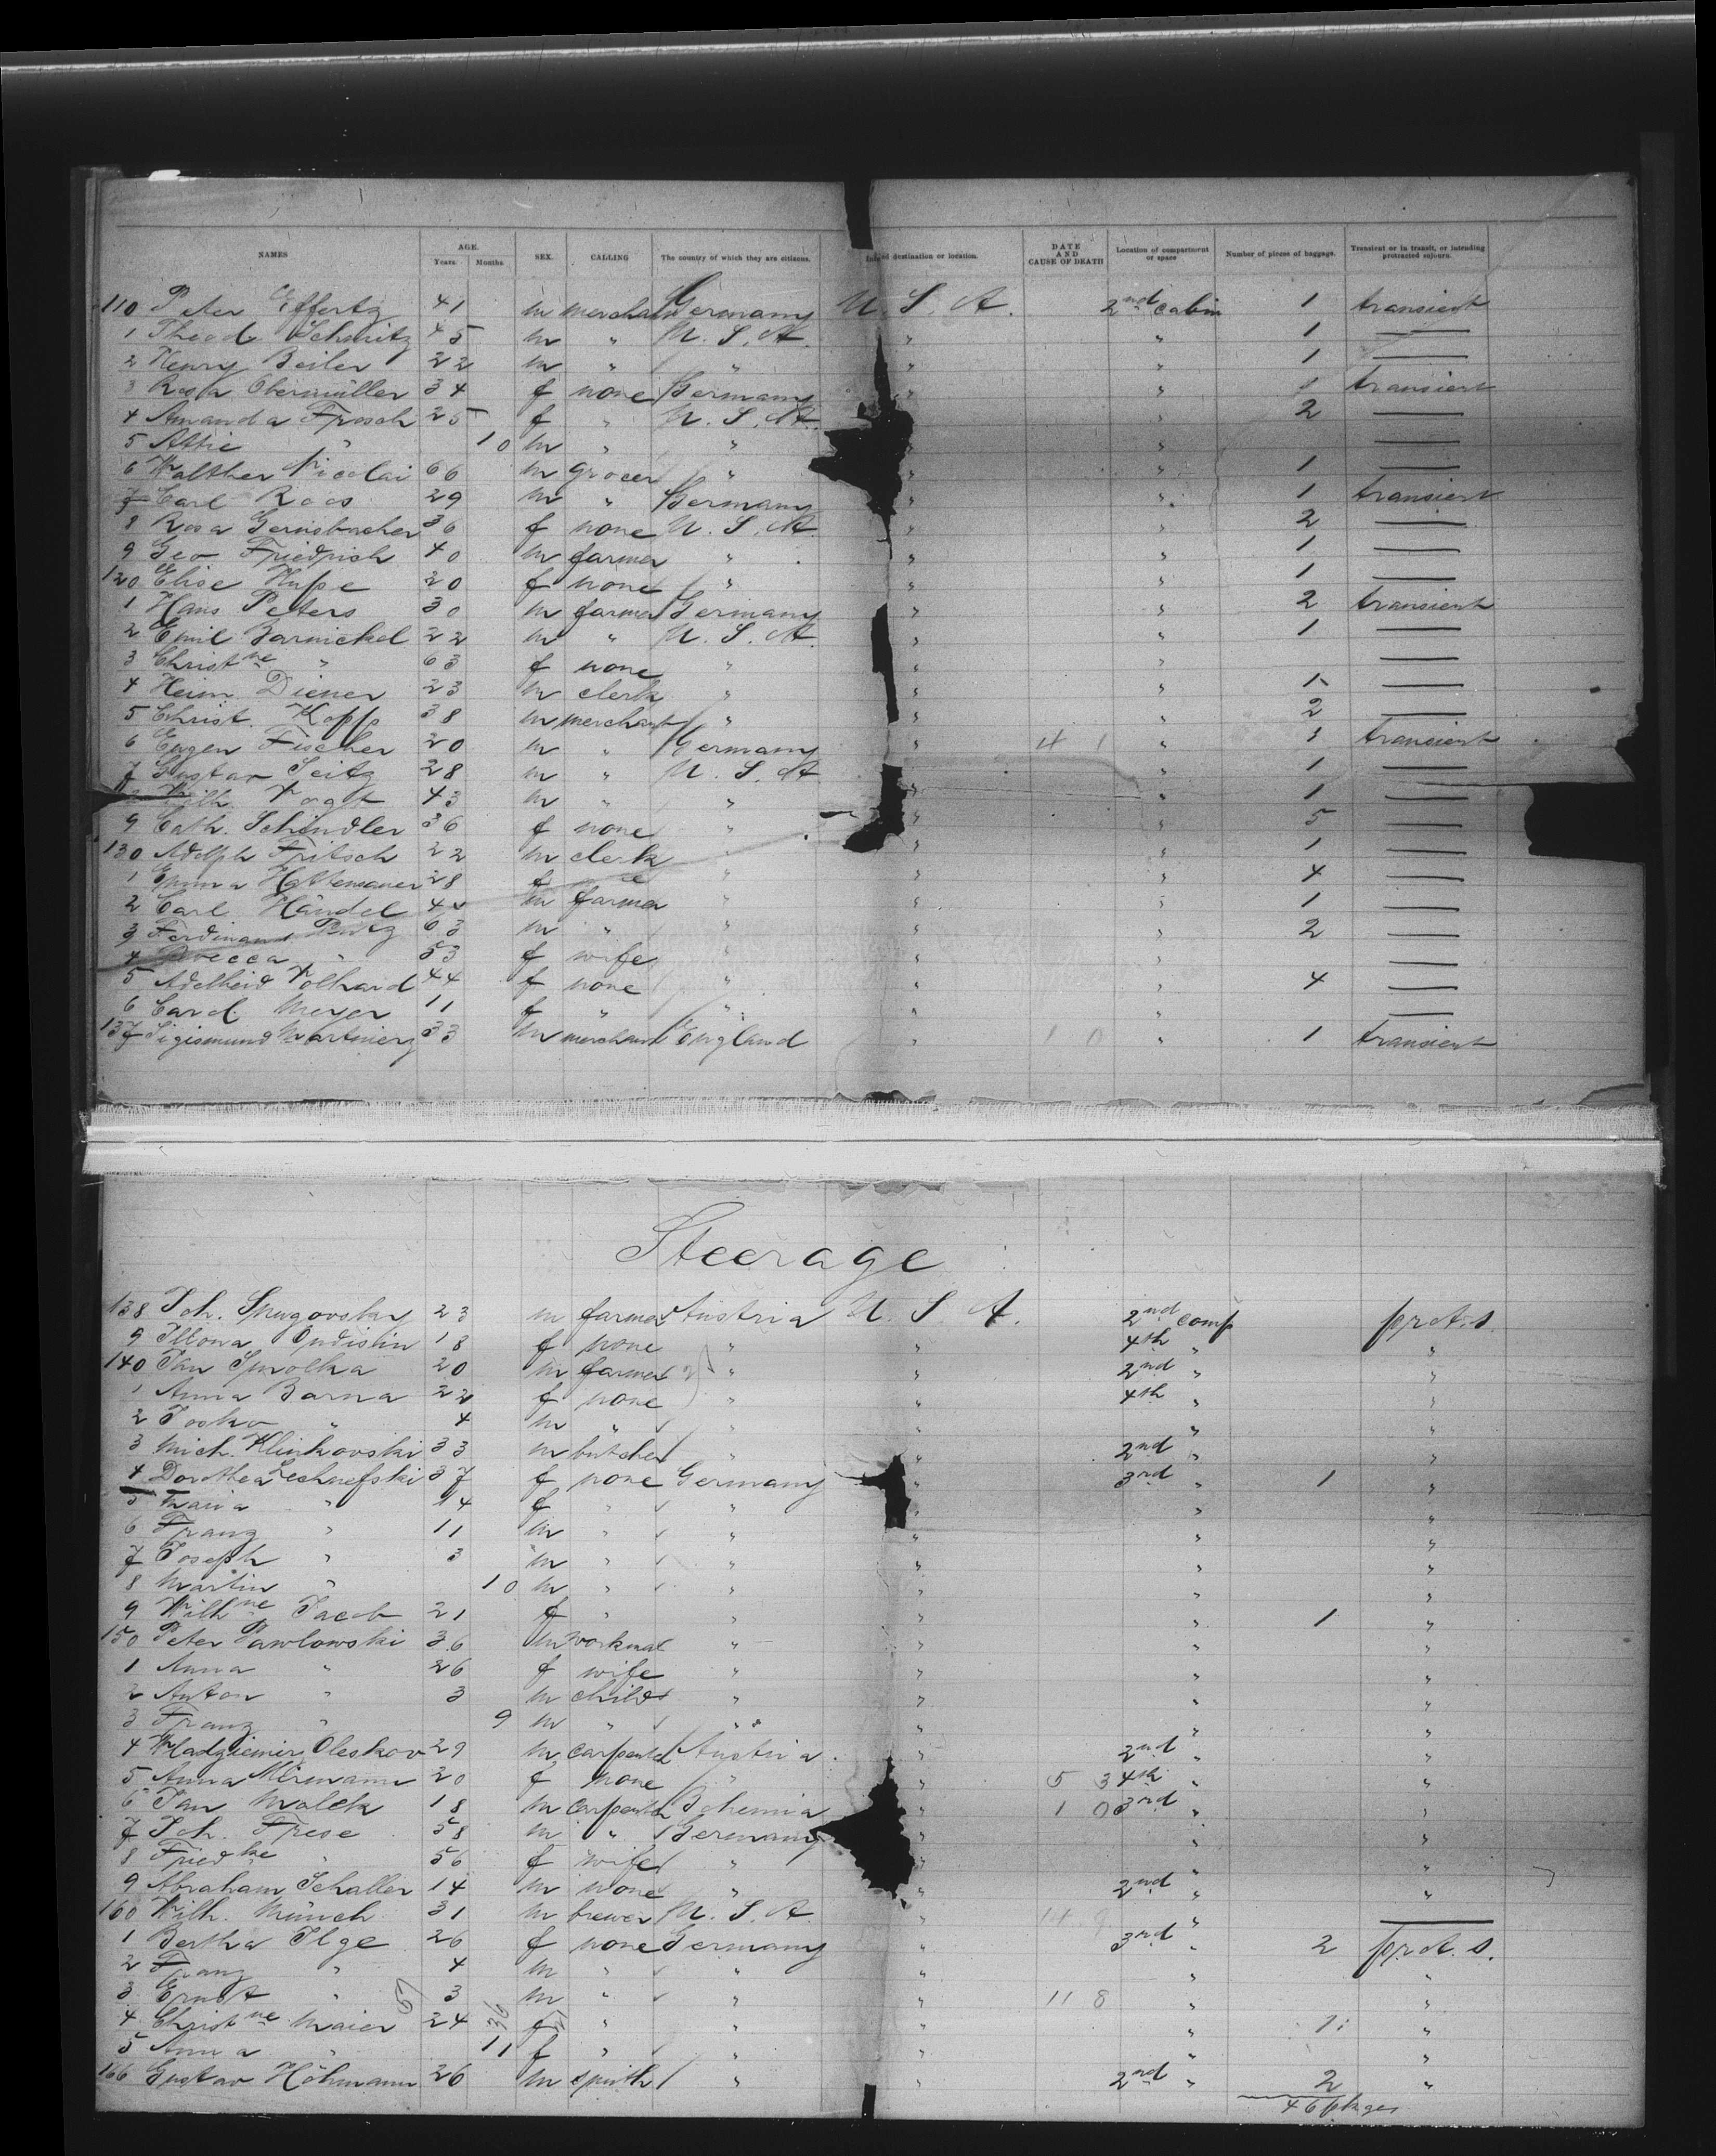 NAMES AGE. Years. Months. SEX. CALLING The country of which they are citizens. Intended destination or location. DATE AND CAUSE OF DEATH Location of compartment or space Number of pieces of baggage. Transient or in transit, or intending protracted sojourn.
110 Peter Effertz 41 m merchant Germany U. S. A. 2nd cabin 1 transient
1 Theod. Schmitz 45 m " U. S. A. " " 1 —
2 Henry Beiler 22 m " " " " 1 —
3 Rosa Obermüller 34 f none Germany " " 1 transient
4 Amanda Frosch 25 f " U. S. A. " " 2 —
5 Attie " 10 m " " " " —
6 Walther Nicolai 66 m grocer " " " 1 —
7 Carl Roos 29 m " Germany " " 1 transient
8 Rosa Gernsbacher 36 f none U. S. A. " " 2 —
9 Geo Friedrich 40 m farmer " " " 1 —
120 Elise Hupe 20 f none " " " 1 —
1 Hans Peters 30 m farmer Germany " " 2 transient
2 Emil Barnickel 22 m " U. S. A. " " 1 —
3 Christne " 63 f none " " " —
4 Heinr. Diener 23 m clerk " " " 1 —
5 Christ. Kopp 38 m merchant " " " 2 —
6 Eugen Fischer 20 m " Germany " 4 1 " 1 transient
7 Gustav Seitz 28 m " U. S. A. " " 1 —
8 Wilh. Vogt 43 m " " " " 1 —
9 Cath. Schindler 36 f none " " " 5 —
130 Adolph Fritsch 22 m clerk " " " 1 —
1 Emma 28 f " " " 4 —
2 Carl Händel 44 m farmer " " " 1 —
3 Ferdinand 63 m " " " " 2 —
4 " 53 f wife " " " —
5 Adelheid Volhard 44 f none " " " 4 —
6 Carol. Meyer 11 f " " " " —
137 Sigismund 33 m merchant England " 1 0 " 1 transient
Steerage
138 Joh. 23 m farmer Austria U. S. A. 2nd comp prot. s.
9 Illona 18 f none " " 4th " "
140 Jan Smolka 20 m farmer " " 2nd " "
1 Anna Barna 22 f none " " 4th " "
2 Josko " 4 m " " " " "
3 Mich. Klinkovski 33 m butcher " " 2nd " "
4 Dorothea 37 f none Germany " 3rd " 1 "
5 Maria " 14 f " " " " "
6 Franz " 11 m " " " " "
7 Joseph " 3 m " " " " "
8 Martin " 10 m " " " " "
9 Wilhne Jacob 21 f " " " " 1 "
150 Peter Pawlowski 36 m workman " " " "
1 Anna " 26 f wife " " " "
2 Anton " 3 m child " " " "
3 Franz " 9 m " " " " "
4 Wladziemirz Oleskov 29 m carpenter Austria " 2nd " "
5 Anna 20 f none " " 5 3 4th " "
6 Jan Walek 18 m carpenter Bohemia " 1 0 3rd " "
7 Joh. Frese 58 m " Germany " " "
8 Friedke " 56 f wife " " " "
9 Abraham Schaller 14 m none " " 2nd " "
160 Wilh. Münch 31 m brewer U. S. A. " " —
1 Bertha Ilge 26 f none Germany " 3rd " 2 prot. s.
2 Franz " 4 m " " " " "
3 Ernst " 3 m " " " 11 8 " "
4 Christne Maier 24 f " " " " 1 "
5 Anna " 11 f " " " " "
166 Gustav Höhmann 26 m smith " " 2nd " 2 "
46 pkges